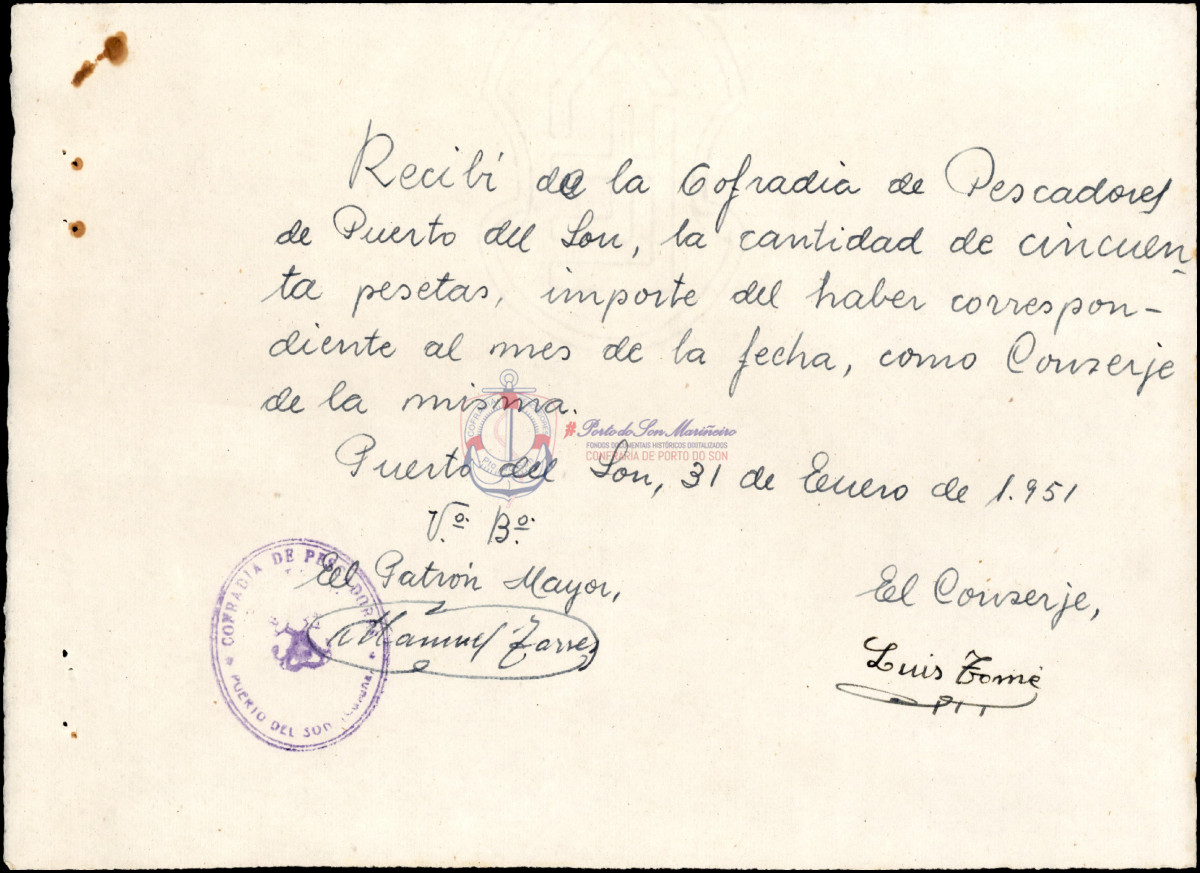 Recibí de la Cofradia de Pescadores
de Puerto del Son, la cantidad de cincuen-
ta pesetas, importe del haber correspon-
diente al mes de la fecha, como Conserje
de la misma.
#Porto do Son Mariñeiro
FONDOS DOCUMENTAIS HISTÓRICOS DIXITALIZADOS
CONFRARÍA DE PORTO DO SON
Puerto del Son, 31 de Enero de 1.951
Vº. Bº.
El Patrón Mayor,
El Conserje,
COFRADIA DE PESCADORES
PUERTO DEL SON
Manuel
Luis Tomé